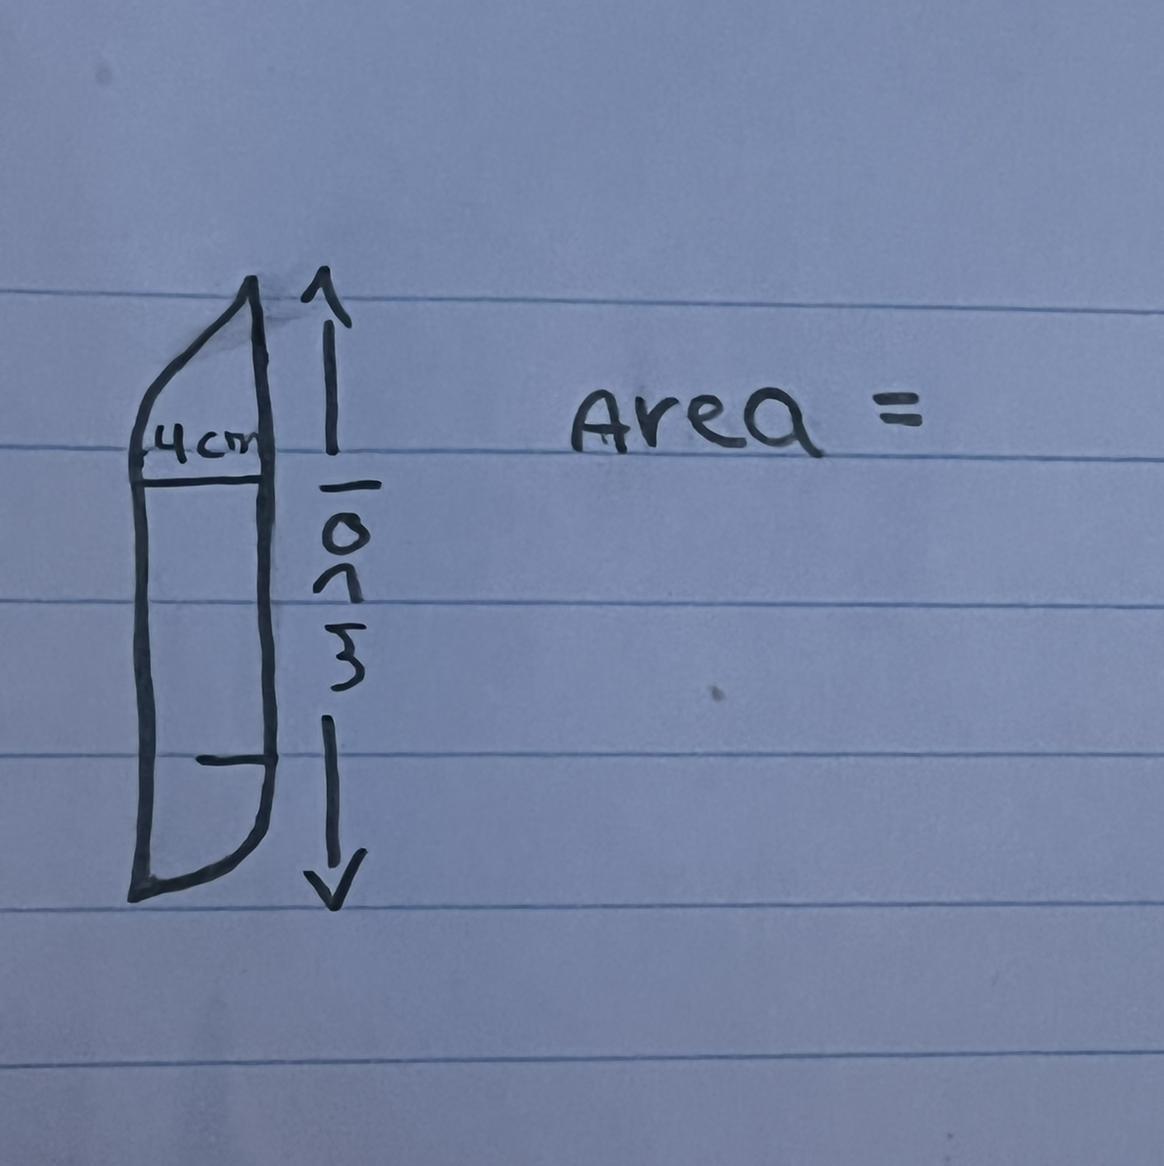 4cm
10cm
Area =